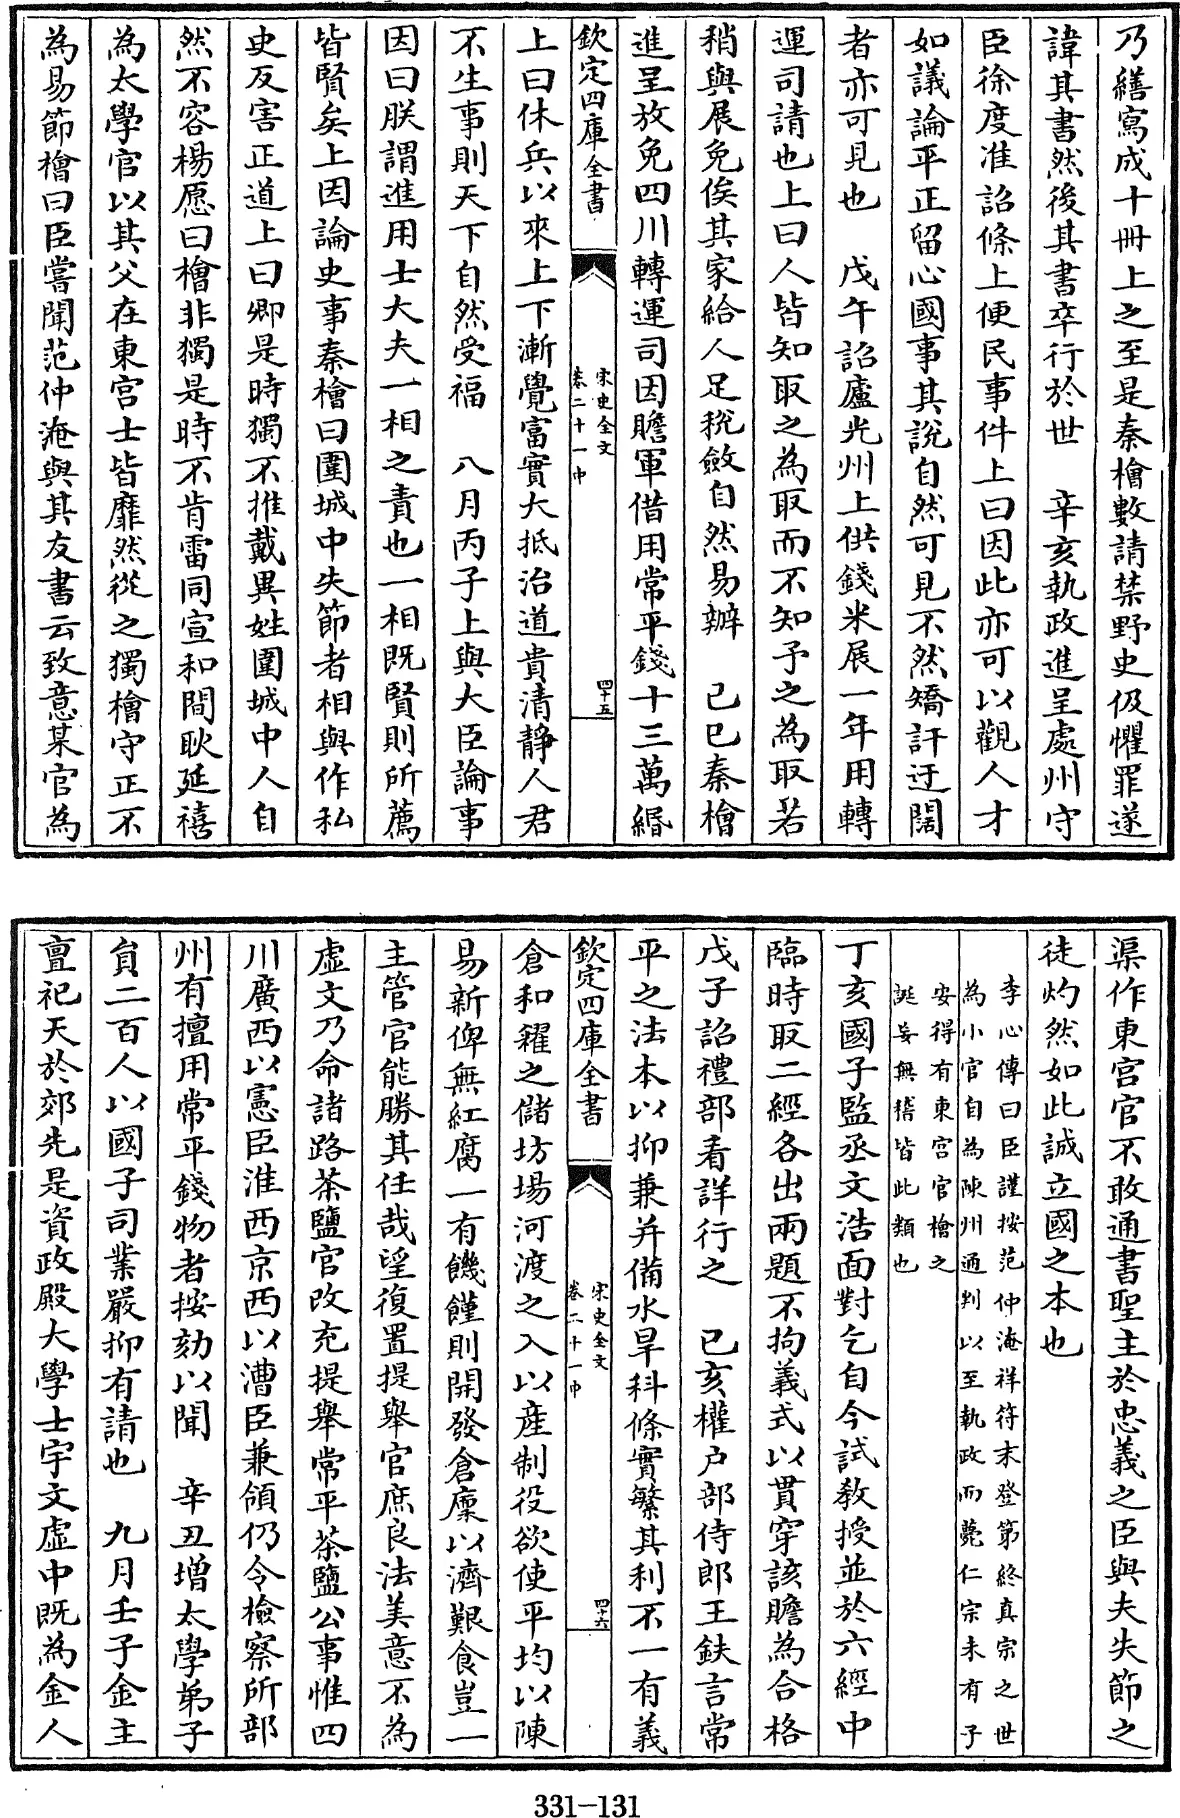 乃繕寫成十冊上之至是秦檜數請禁野史伋懼罪遂
諱其書然後其書卒行於世　辛亥執政進呈處州守
臣徐度准詔條上便民事件上曰因此亦可以觀人才
如議論平正留心國事其說自然可見不然矯訐迂闊
者亦可見也　戊午詔廬光州上供錢米展一年用轉
運司請也上曰人皆知取之為取而不知予之為取若
稍與展免俟其家給人足稅斂自然易辦　己巳秦檜
進呈放免四川轉運司因贍軍借用常平錢十三萬緡
欽定四庫全書
宋史全文
卷二十一中
四十五
上曰休兵以來上下漸覺富實大抵治道貴清靜人君
不生事則天下自然受福　八月丙子上與大臣論事
因曰朕謂進用士大夫一相之責也一相既賢則所薦
皆賢矣上因論史事秦檜曰圍城中失節者相與作私
史反害正道上曰卿是時獨不推戴異姓圍城中人自
然不容楊愿曰檜非獨是時不肯雷同宣和間耿延禧
為太學官以其父在東宮士皆靡然從之獨檜守正不
為易節檜曰臣嘗聞范仲淹與其友書云致意某官為
渠作東宮官不敢通書聖主於忠義之臣與夫失節之
徒灼然如此誠立國之本也
李心傳曰臣謹按范仲淹祥符末登第終真宗之世
為小官自為陳州通判以至執政而薨仁宗未有子
安得有東宮官檜之
誕妄無稽皆此類也
丁亥國子監丞文浩面對乞自今試教授並於六經中
臨時取二經各出兩題不拘義式以貫穿該贍為合格
戊子詔禮部看詳行之　己亥權户部侍郎王鈇言常
平之法本以抑兼并備水旱科條實繁其利不一有義
欽定四庫全書
宋史全文
卷二十一中
四十六
倉和糴之儲坊場河渡之入以產制役欲使平均以陳
易新俾無紅腐一有饑饉則開發倉廩以濟艱食豈一
主管官能勝其任哉望復置提舉官庶良法美意不為
虛文乃命諸路茶鹽官改充提舉常平茶鹽公事惟四
川廣西以憲臣淮西京西以漕臣兼領仍令檢察所部
州有擅用常平錢物者按劾以聞　辛丑增太學弟子
員二百人以國子司業嚴抑有請也　九月壬子金主
亶祀天於郊先是資政殿大學士宇文虛中既為金人
331-131